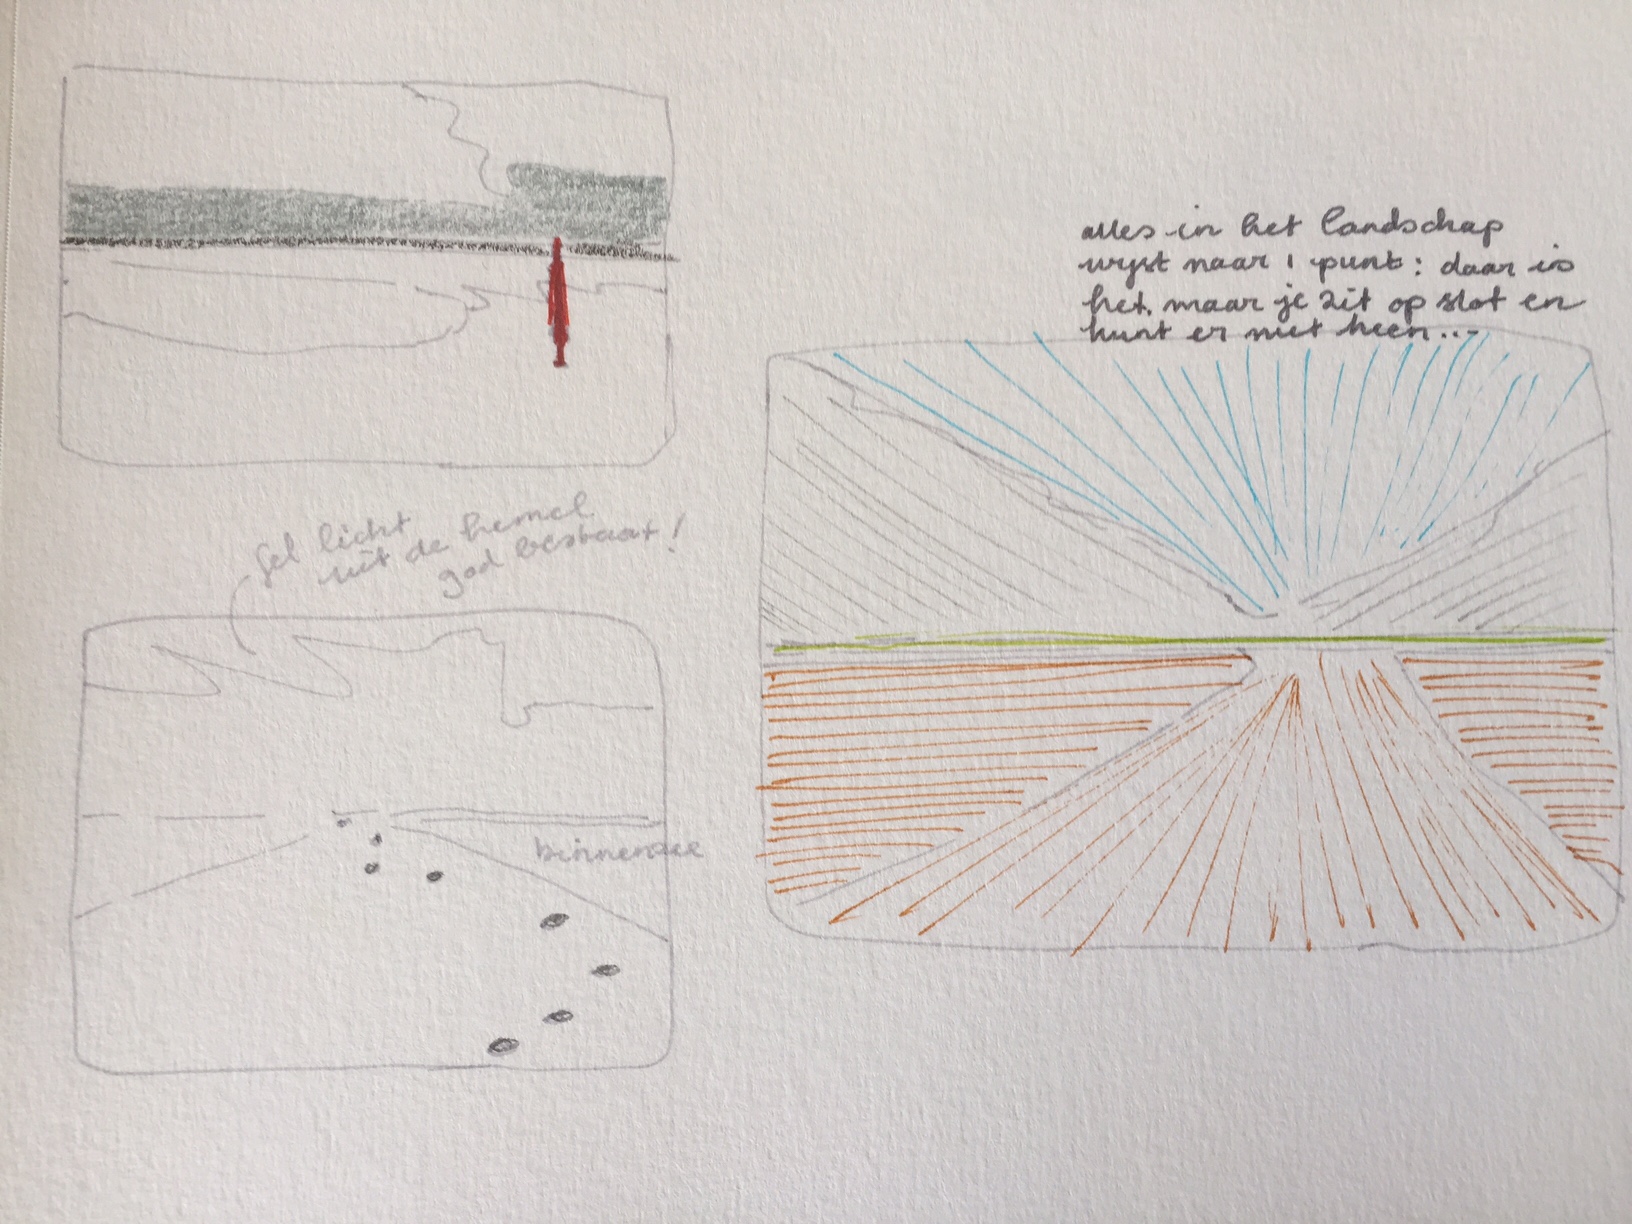 alles in het landschap
wijst naar 1 punt: daar is
het, maar je zit op slot en
kunt er niet heen...
fel licht
uit de hemel
god bestaat!
binnenzee